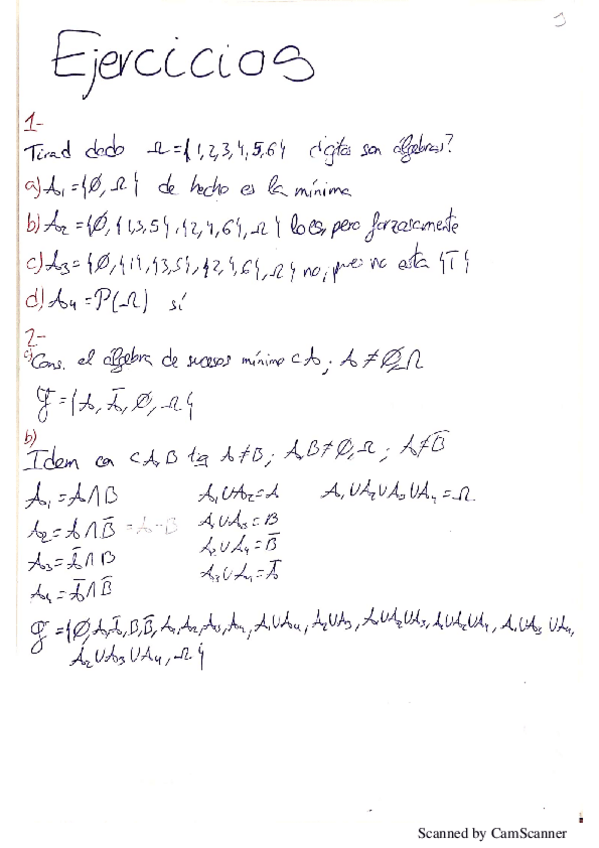 Ejercicios
1-
Tirad dado Ω={1,2,3,4,5,6} son álgebras?
a) A₁={∅, Ω} de hecho es la mínima
b) A₂={∅,{1,3,5},{2,4,6},Ω} lo es, pero forzosamente
c) A₃={∅,{1},{3,5},{2,4,6},Ω} no, pues no esta {1̄}
d) A₄=P(Ω) sí
2-
a) Cons. el álgebra de sucesos mínimo c A; A≠∅,Ω
F={A, Ā, ∅, Ω}
b)
Idem con c A,B tq A≠B; A,B≠∅,Ω; A≠B̄
A₁=A∩B A₁∪A₂=A A₁∪A₂∪A₃∪A₄=Ω
A₂=A∩B̄=A-B A₁∪A₃=B
A₃=Ā∩B A₂∪A₄=B̄
A₄=Ā∩B̄ A₃∪A₄=Ā
F={∅,A,Ā,B,B̄,A₁,A₂,A₃,A₄,A₁∪A₄,A₂∪A₃,A₁∪A₂∪A₃,A₁∪A₂∪A₄,A₁∪A₃∪A₄,
A₂∪A₃∪A₄,Ω}
Scanned by CamScanner